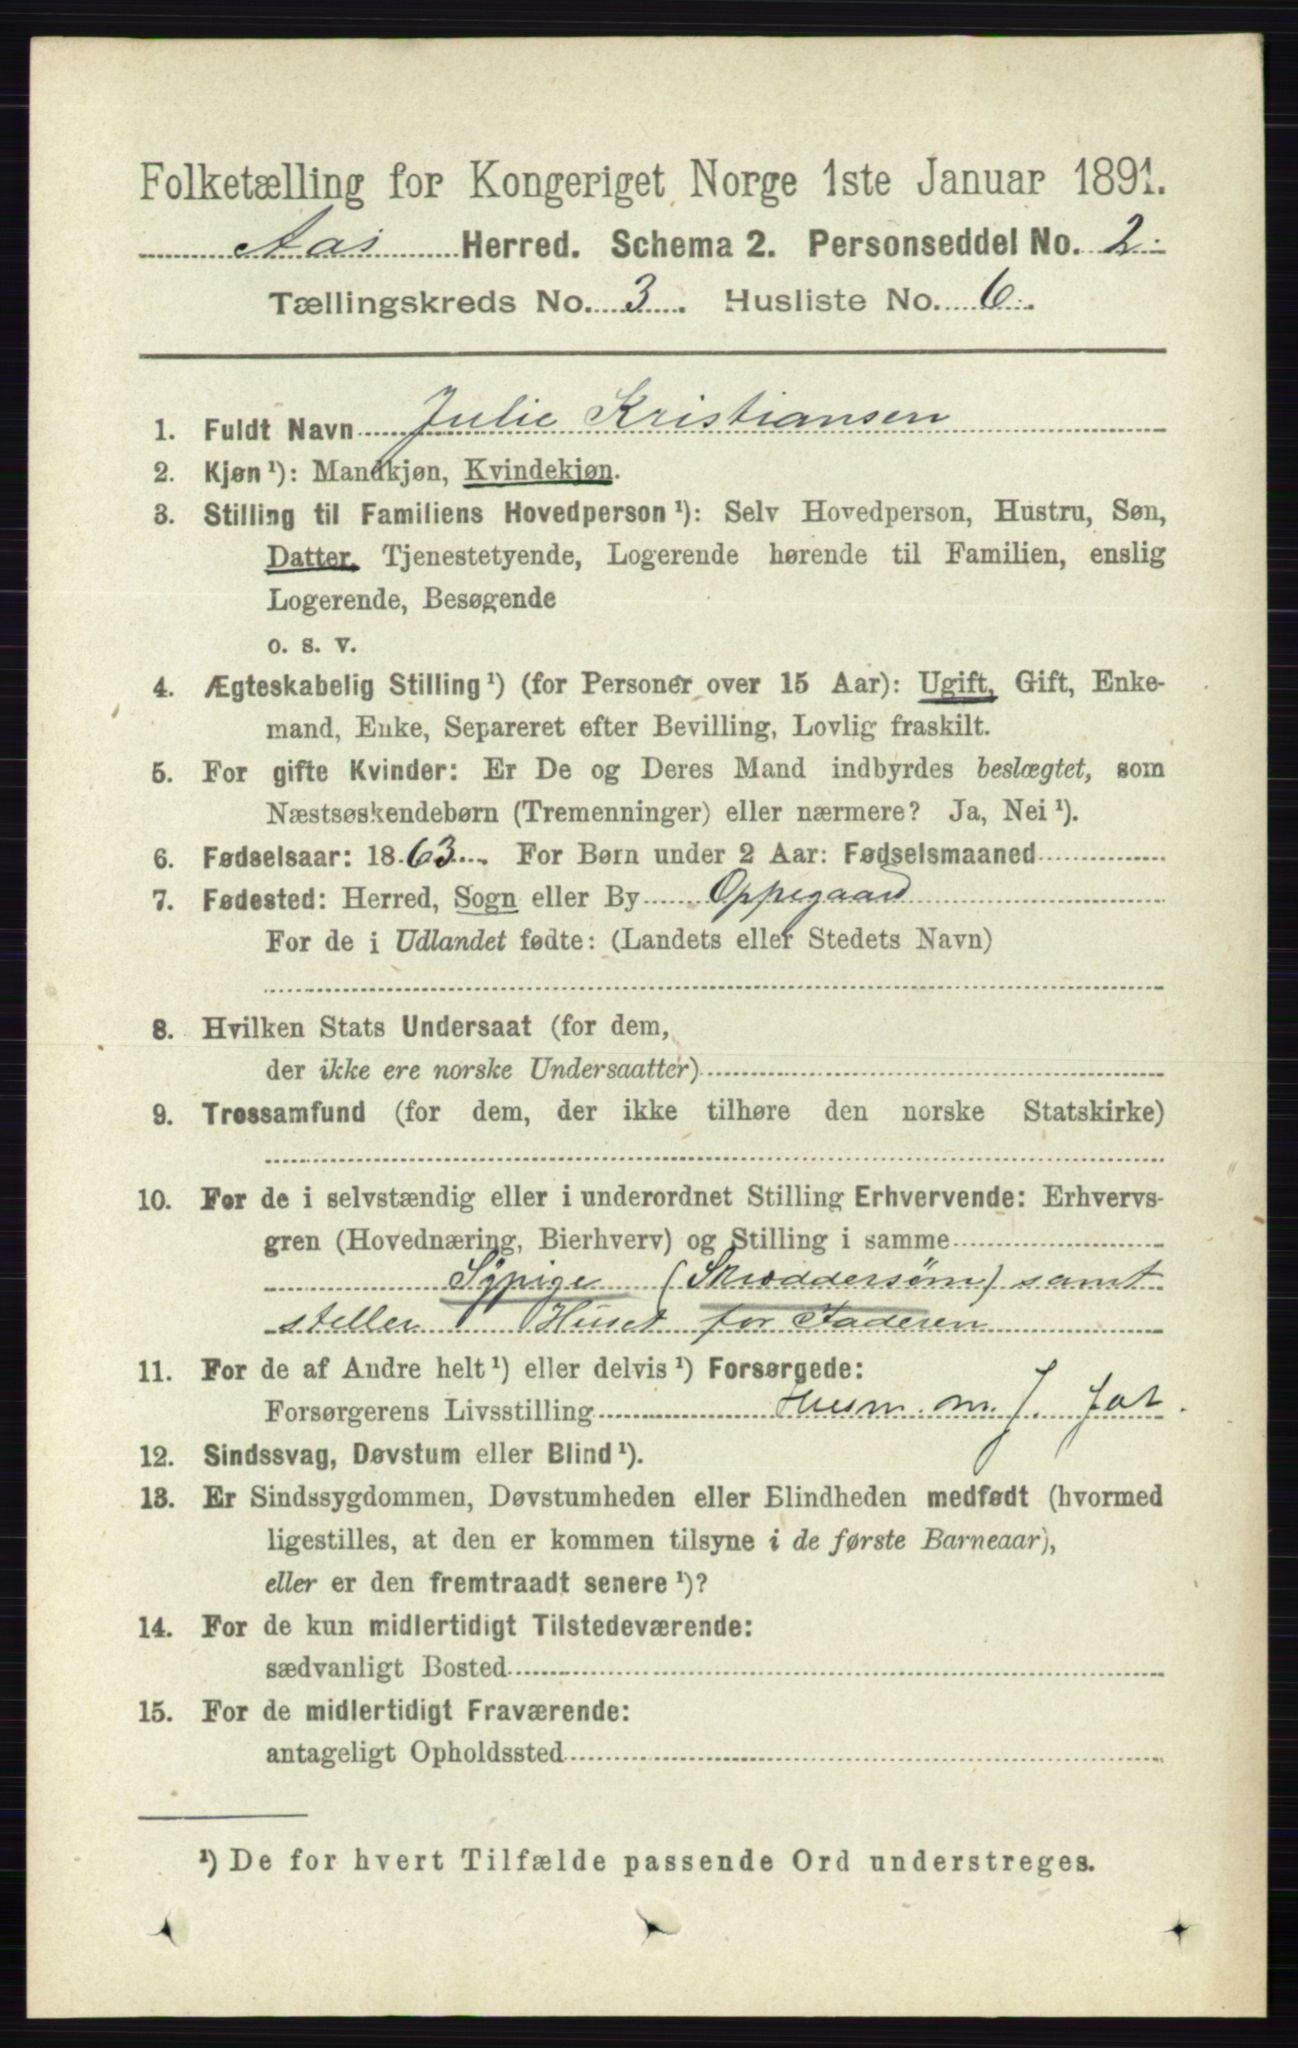 Folketælling for Kongeriget Norge 1ste Januar 1891.
Aas Herred. Schema 2. Personseddel No. 2.
Tællingskreds No. 3. Husliste No. 6.
1. Fuldt Navn Julie Kristiansen
2. Kjøn ¹): Mandkjøn, Kvindekjøn.
3. Stilling til Familiens Hovedperson ¹): Selv Hovedperson, Hustru, Søn,
Datter, Tjenestetyende, Logerende hørende til Familien, enslig
Logerende, Besøgende
o. s. v.
4. Ægteskabelig Stilling ¹) (for Personer over 15 Aar): Ugift, Gift, Enke-
mand, Enke, Separeret efter Bevilling, Lovlig fraskilt.
5. For gifte Kvinder: Er De og Deres Mand indbyrdes beslægtet, som
Næstsøskendebørn (Tremenninger) eller nærmere? Ja, Nei ¹).
6. Fødselsaar: 1863. For Børn under 2 Aar: Fødselsmaaned
7. Fødested: Herred, Sogn eller By Oppegaard
For de i Udlandet fødte: (Landets eller Stedets Navn)
8. Hvilken Stats Undersaat (for dem,
der ikke ere norske Undersaatter)
9. Trossamfund (for dem, der ikke tilhøre den norske Statskirke)
10. For de i selvstændig eller i underordnet Stilling Erhvervende: Erhvervs-
gren (Hovednæring, Bierhverv) og Stilling i samme
Sypige (Skræddersøm) samt
steller Huset for Faderen
11. For de af Andre helt ¹) eller delvis ¹) Forsørgede:
Forsørgerens Livsstilling Husm. m. J. fat.
12. Sindssvag, Døvstum eller Blind ¹).
13. Er Sindssygdommen, Døvstumheden eller Blindheden medfødt (hvormed
ligestilles, at den er kommen tilsyne i de første Barneaar),
eller er den fremtraadt senere ¹)?
14. For de kun midlertidigt Tilstedeværende:
sædvanligt Bosted
15. For de midlertidigt Fraværende:
antageligt Opholdssted
¹) De for hvert Tilfælde passende Ord understreges.